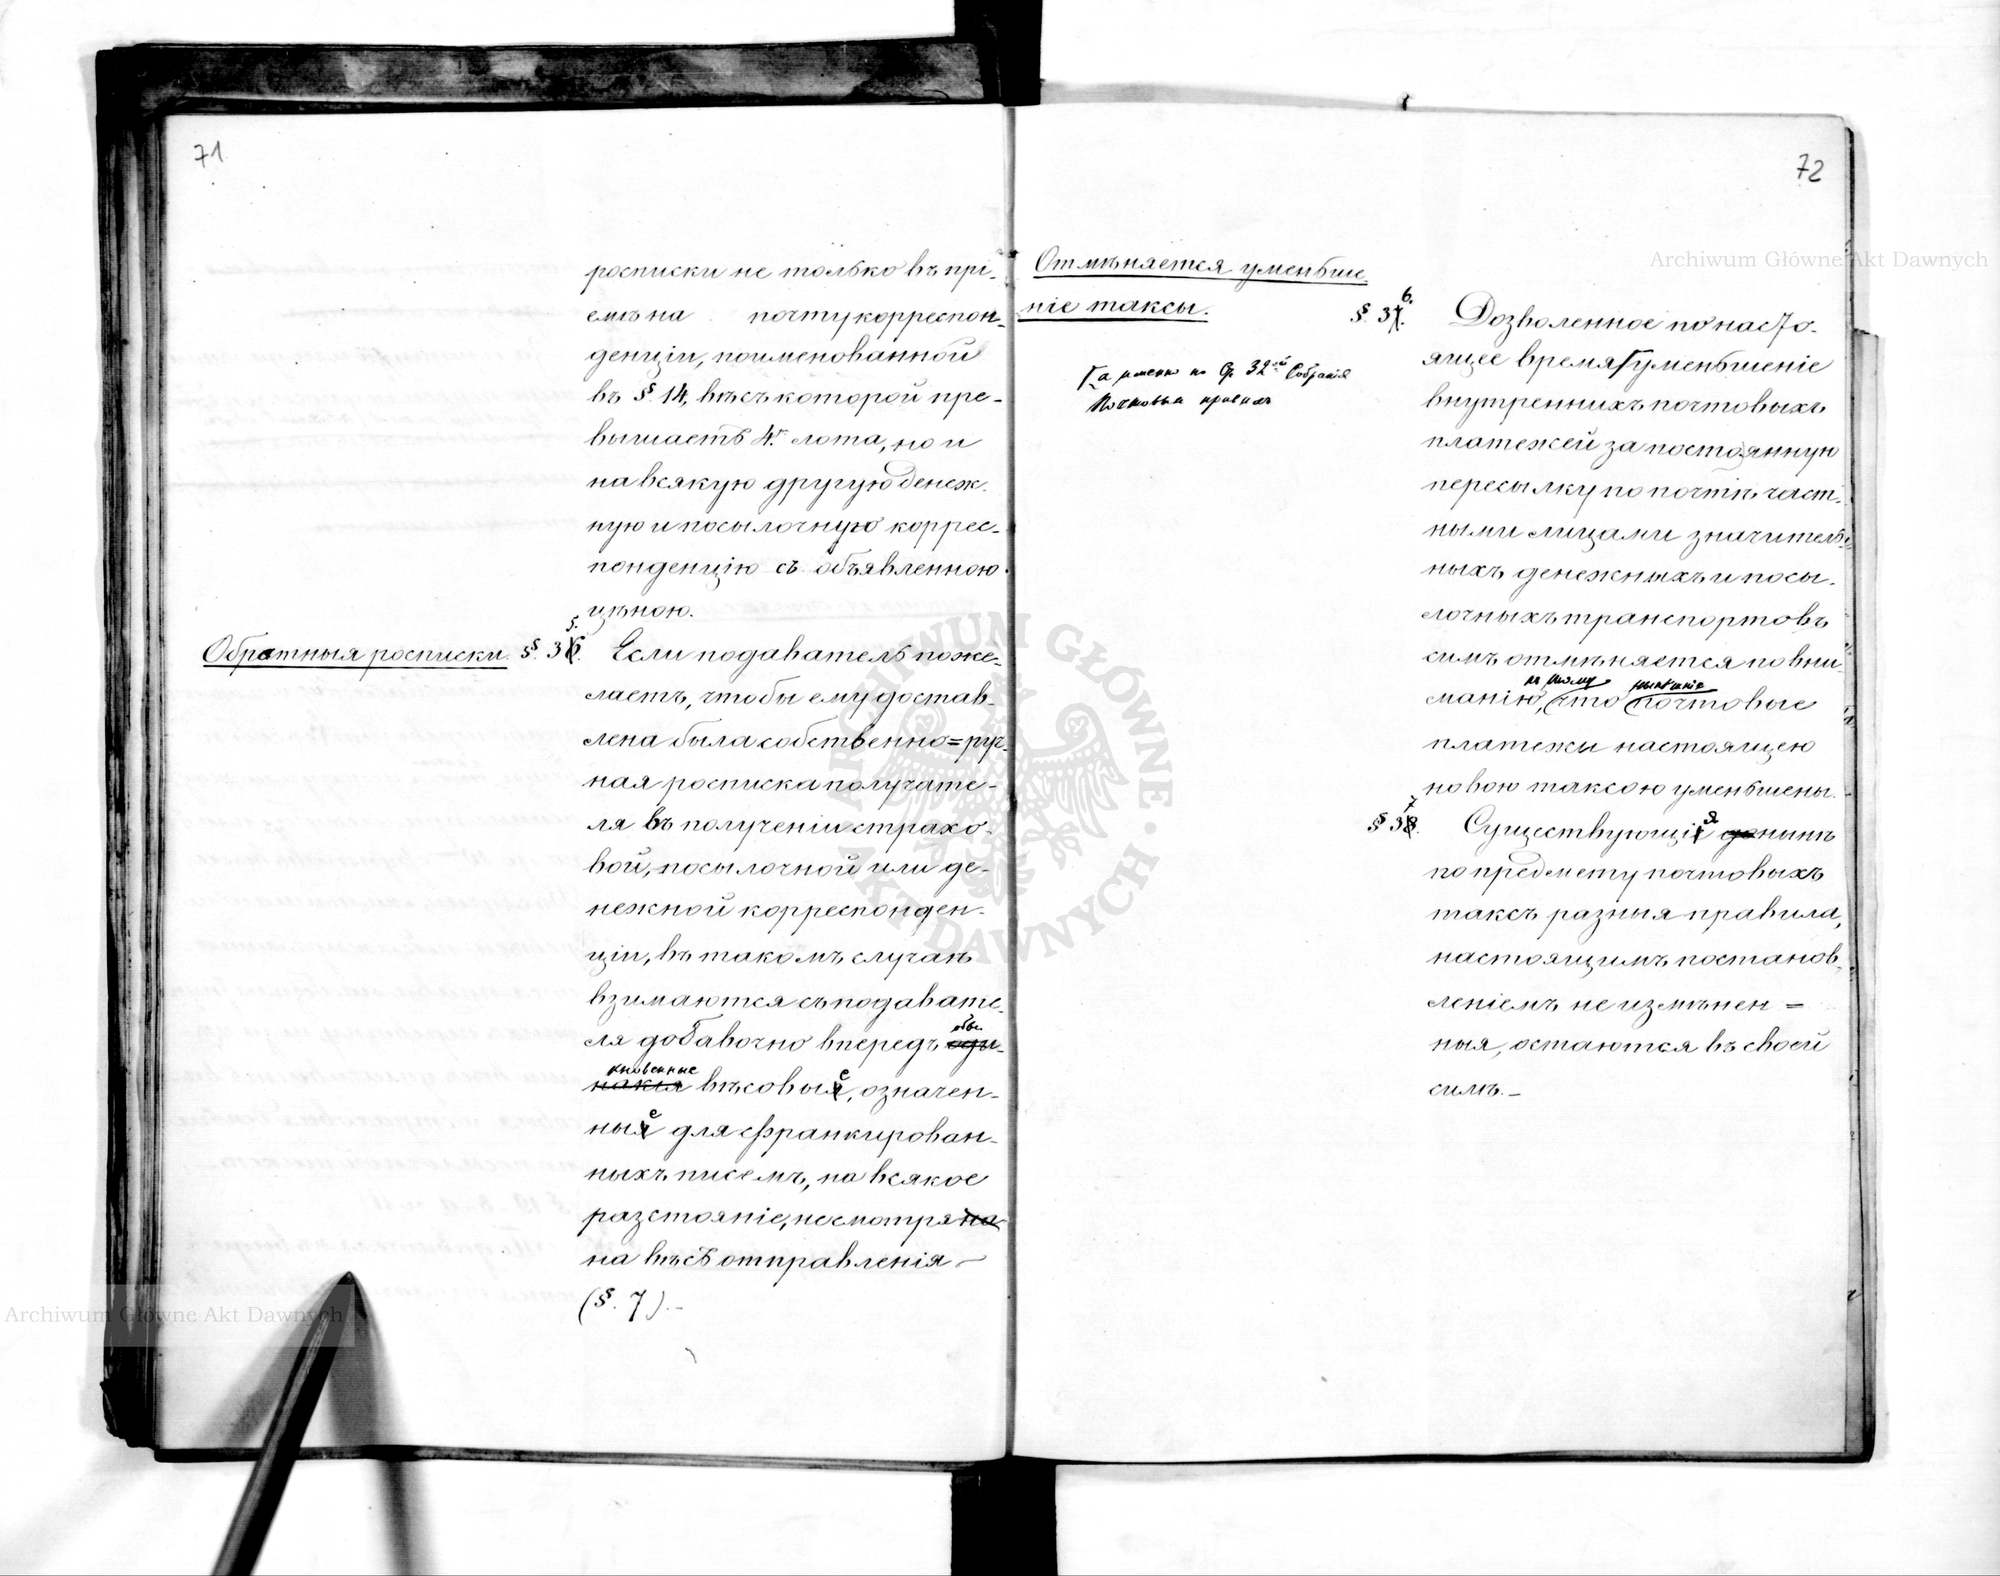 71
росписки не только въ прі-
емѣ на почту корреспон-
денціи, поименованной
въ § 14, вѣсъ которой пре-
вышаетъ 4. лота, но и
на всякую другую денеж-
ную и посылочную коррес-
понденцію съ объявленною
цѣною.
Обратныя росписки. § 36. 5.
Если подаватель поже-
лаетъ, чтобы ему достав-
лена была собственно=руч-
ная росписка получате-
ля въ полученіи страхо-
вой, посылочной или де-
нежной корреспонден-
ціи, въ такомъ случаѣ
взимаются съ подавате-
ля добавочно впередъ оди- обы-
накія кновенные вѣсовыя е, означен-
ныя е для франкирован-
ныхъ писемъ, на всякое
разстояніе, несмотря на
на вѣсъ отправленія —
(§. 7).-
72
Отмѣняется уменьше-
ніе таксы.
§ 37. 6.
Дозволенное по насто-
ящее время Г уменьшеніе
внутреннихъ почтовыхъ
платежей за постоянную
пересылку по почтѣ част-
ными лицами значитель-
ныхъ денежныхъ и посы-
лочныхъ транспортовъ
симъ отмѣняется по вни-
манію, къ тому что нынѣшніе почтовые
платежи настоящею
новою таксою уменьшены.
Г а именно по 32ой Собранія
Почтовыхъ правилъ
§ 38. 7
Существующіе я до нынѣ
по предмету почтовыхъ
таксъ разныя правила,
настоящимъ постанов-
леніемъ не измѣнен=
ныя, остаются въ своей
силѣ.-
Archiwum Główne Akt Dawnych
Archiwum Główne Akt Dawnych
ARCHIWUM GŁÓWNE AKT DAWNYCH